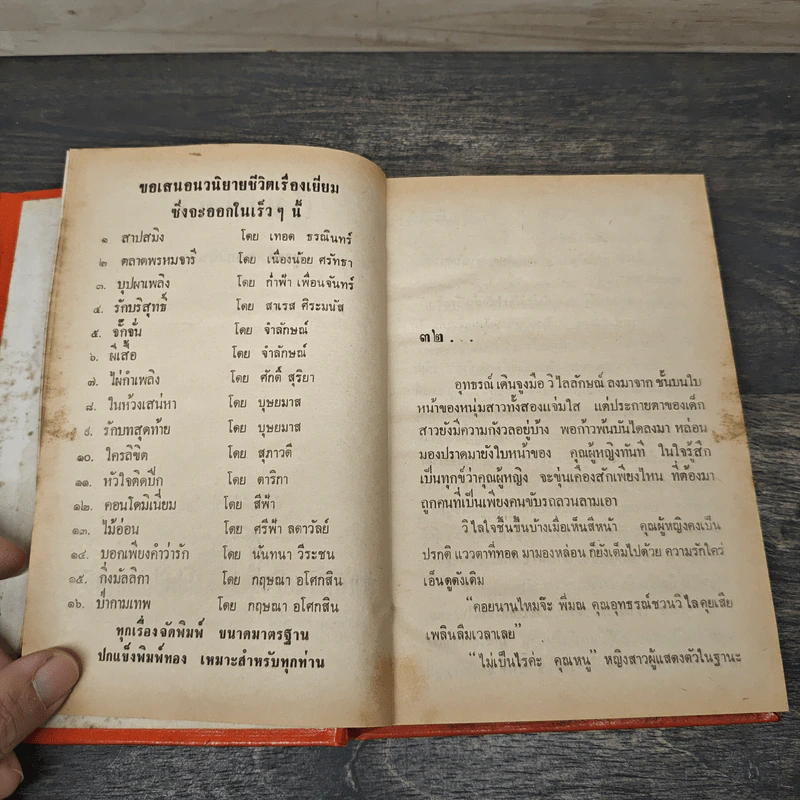 ขอเสนอนวนิยายชีวิตเรื่องเยี่ยม
ซึ่งจะออกในเร็ว ๆ นี้
๑ สาปสมิง โดย เทอด ธรณินทร์
๒ ตลาดพรหมจารี โดย เนื่องน้อย ศรัทธา
๓. บุปผาเพลิง โดย ก่ำฟ้า เพื่อนจันทร์
๔. รักบริสุทธิ์ โดย สาเรส ศิระมนัส
๕. จั๊กจั่น โดย จำลักษณ์
๖. ผีเสื้อ โดย จำลักษณ์
๗. ไผ่กำเพลิง โดย ศักดิ์ สุริยา
๘. ในห้วงเสน่หา โดย บุษยมาส
๙. รักบทสุดท้าย โดย บุษยมาส
๑๐. ใครลิขิต โดย สุภาวดี
๑๑. หัวใจติดปีก โดย ดาริกา
๑๒. คอนโดมิเนี่ยม โดย สีฟ้า
๑๓. ไม้อ่อน โดย ศรีฟ้า ลดาวัลย์
๑๔. บอกเพียงคำว่ารัก โดย นันทนา วีระชน
๑๕. กิ่งมัลลิกา โดย กฤษณา อโศกสิน
๑๖. ป่ากามเทพ โดย กฤษณา อโศกสิน
ทุกเรื่องจัดพิมพ์ ขนาดมาตรฐาน
ปกแข็งพิมพ์ทอง เหมาะสำหรับทุกท่าน
๓๒ . . .
อุทธรณ์ เดินจูงมือ วิไลลักษณ์ ลงมาจาก ชั้นบนใบ
หน้าของหนุ่มสาวทั้งสองแจ่มใส แต่ประกายตาของเด็ก
สาวยังมีความกังวลอยู่บ้าง พอก้าวพ้นบันไดลงมา หล่อน
มองปราดมายังใบหน้าของ คุณผู้หญิงทันที ในใจรู้สึก
เป็นทุกข์ว่าคุณผู้หญิง จะขุ่นเคืองสักเพียงไหน ที่ต้องมา
ถูกคนที่เป็นเพียงคนขับรถลวนลามเอา
วิไลใจชื้นขึ้นบ้างเมื่อเห็นสีหน้า คุณผู้หญิงคงเป็น
ปรกติ แววตาที่ทอด มามองหล่อน ก็ยังเต็มไปด้วย ความรักใคร่
เอ็นดูดังเดิม
“คอยนานไหมจ๊ะ พี่มณ คุณอุทธรณ์ชวนวิไลคุยเสีย
เพลินลืมเวลาเลย”
“ไม่เป็นไรค่ะ คุณหนู” หญิงสาวผู้แสดงตัวในฐานะ